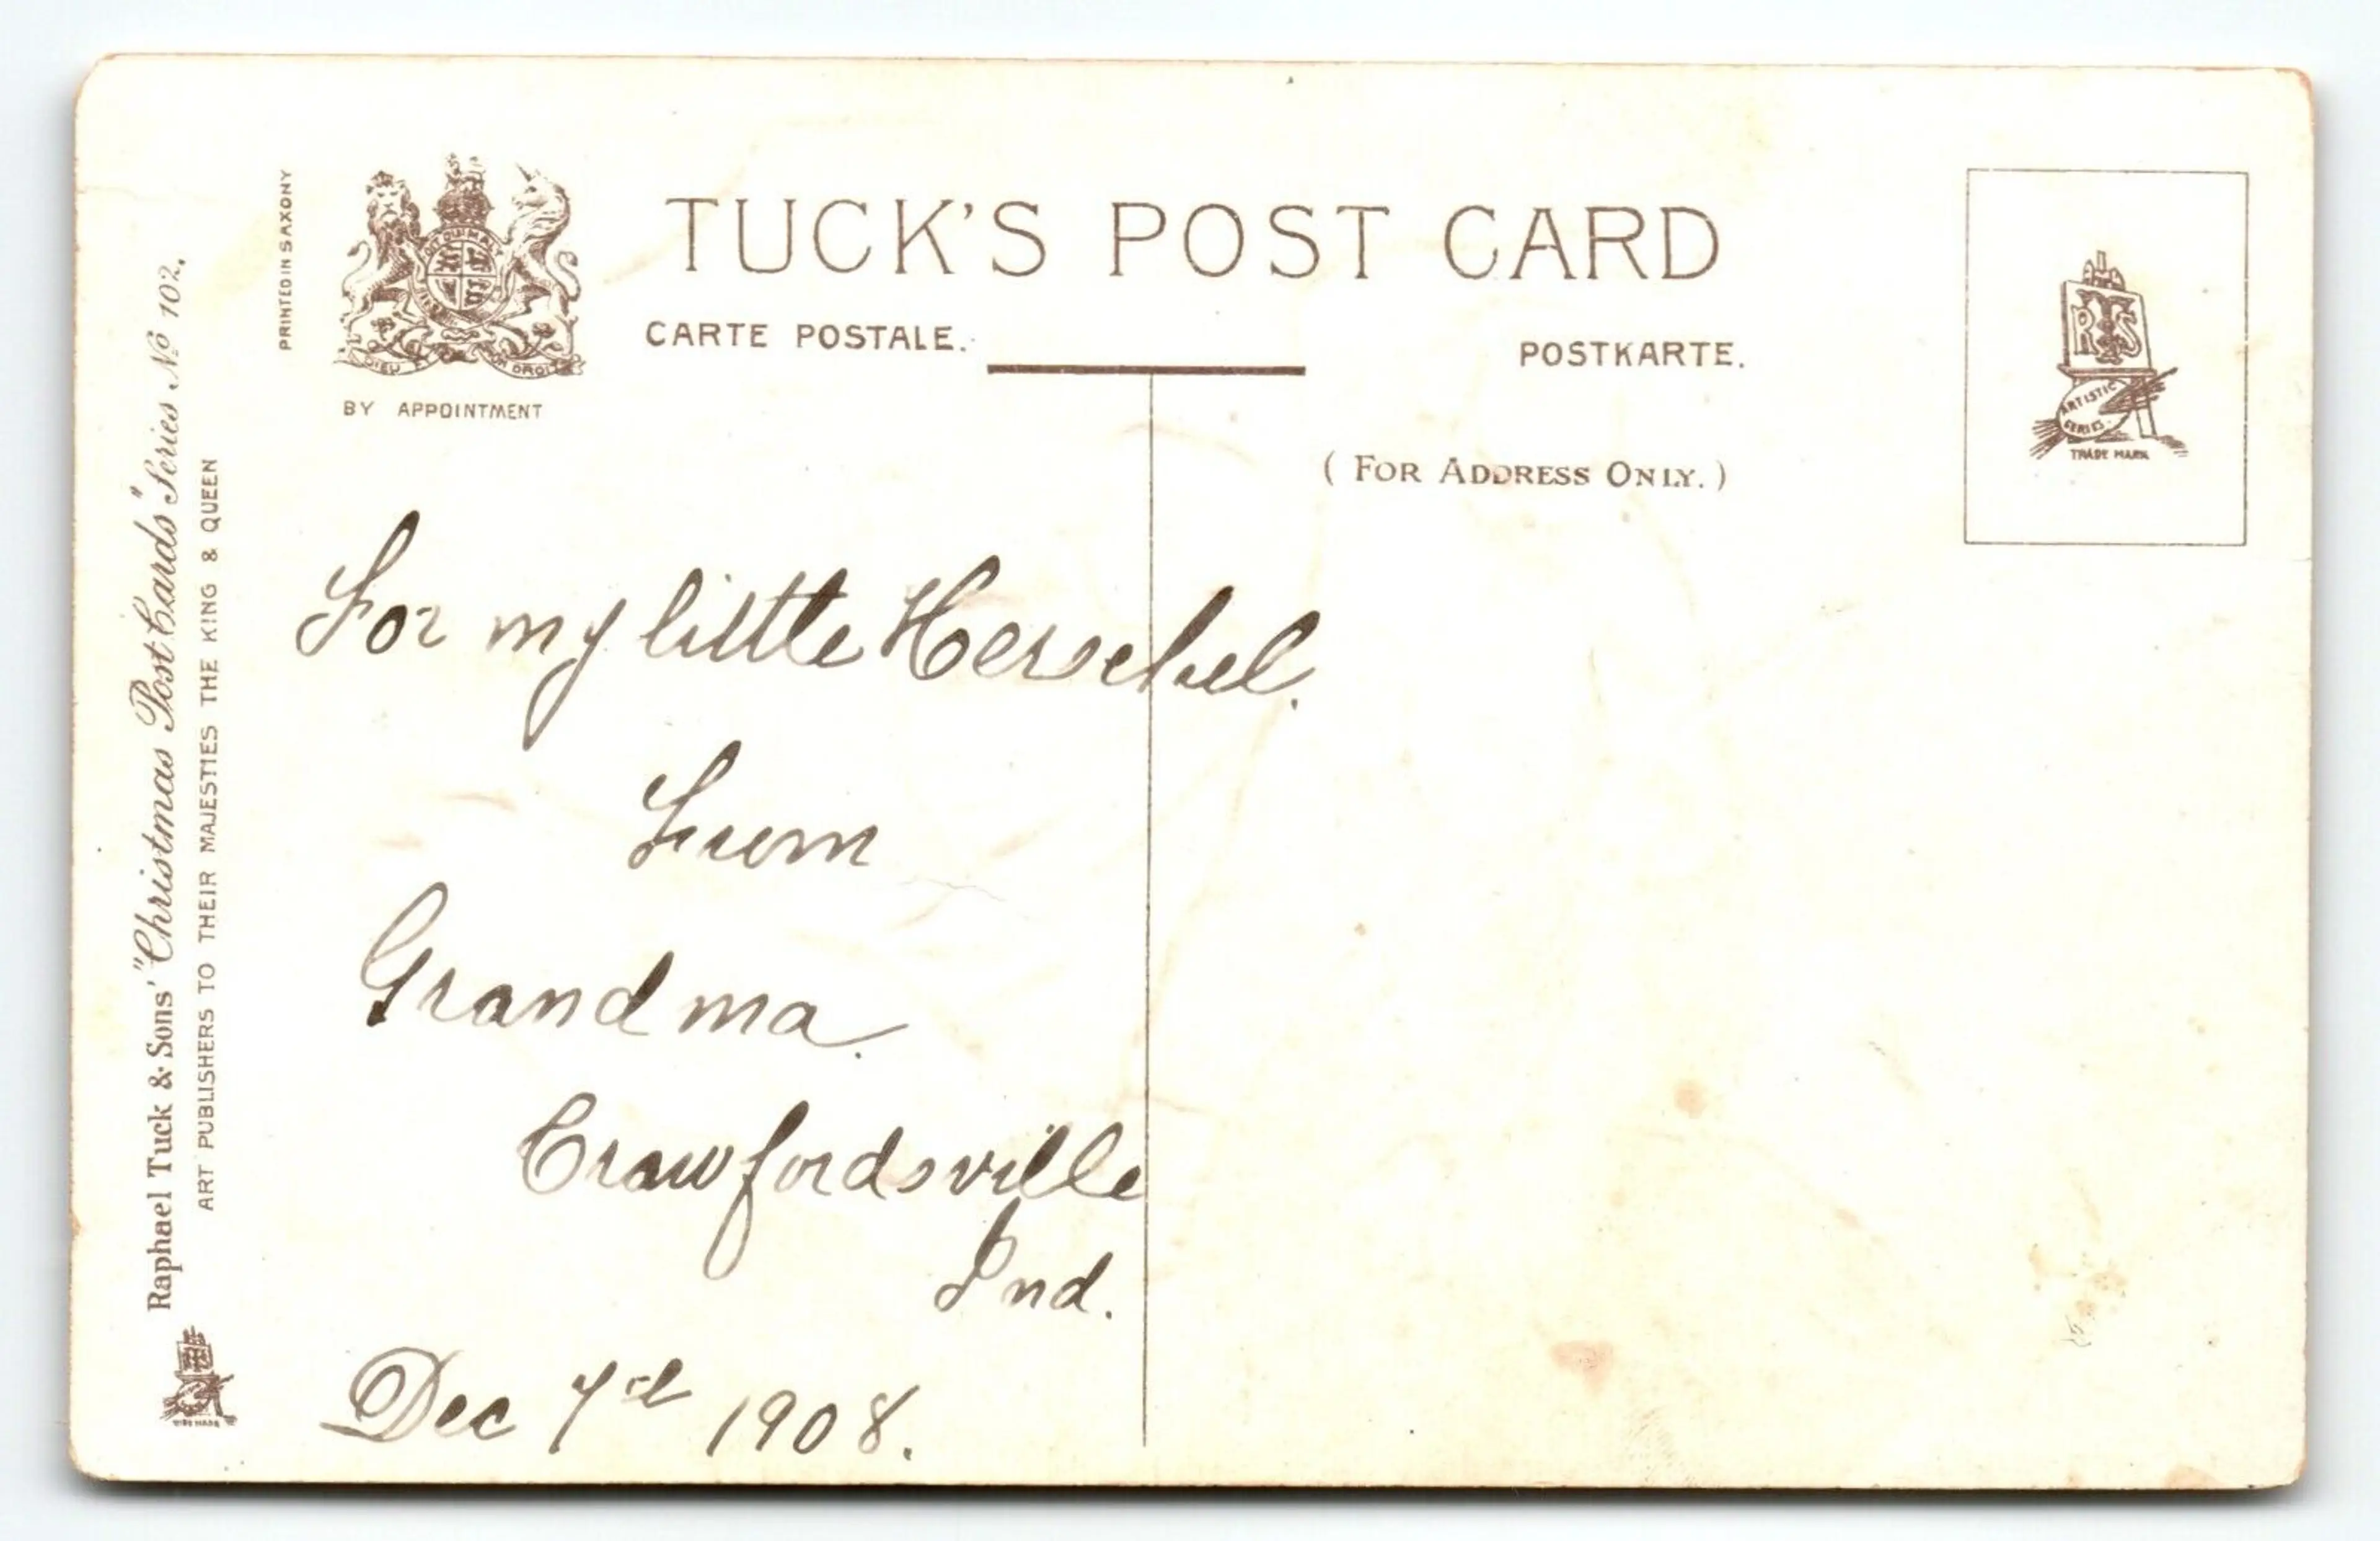 PRINTED IN SAXONY
TUCK'S POST CARD
CARTE POSTALE.
POSTKARTE.
BY APPOINTMENT
(FOR ADDRESS ONLY.)
RTS
ARTISTIC
SERIES.
TRADE MARK
Raphael Tuck & Sons' "Christmas Post Cards" Series No 102.
ART PUBLISHERS TO THEIR MAJESTIES THE KING & QUEEN
For my little Herschel.
From
Grandma.
Crawfordsville
Ind.
Dec 7th 1908.